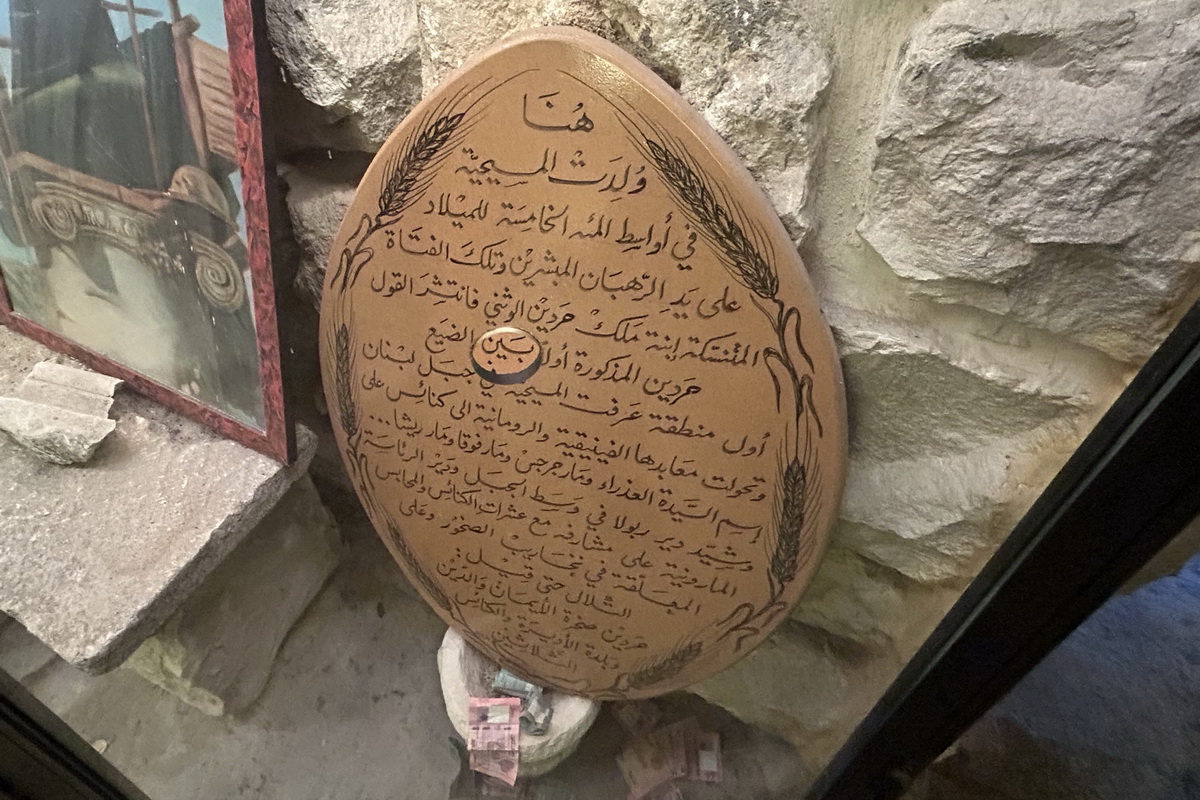 هُنَا
وُلِدَتْ المسيحيّة
في أواسِط المئه الخامِسَة للميْلاد
على يَدِ الرّهبَان المبشرين وَتلكَ الفتاة
المتنسّكة إبنة مَلكْ حَردين الوثني فانتشرَ القول
حَردين المذكورة أولى بَين الضيَع
أول منطقة عَرفت المسيحية في جبَل لبنَان
وتحولت معَابدها الفينيقية والرومانية الى كنائس على
إسم السَّيدة العذراء ومَار جرجس ومَار فوقا ومَار ريشا...
وشيّد دير ريولا في وسَط الجبَل وديْر الرئاسَة
المارونية على مشارفه مع عشرات الكنائس والمحابس
المعَلقة في تجَاريب الصخور وعَلى
الشلال حتى قيْل :
حَردين صَخرة الإيمَان والدّين
وبلدة الأديرة والكنائس